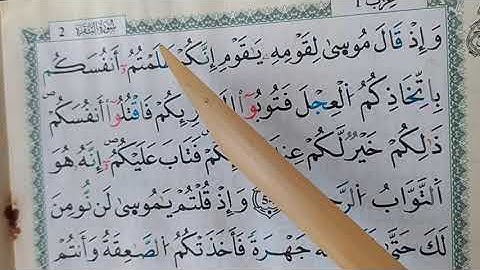 حزب 1 سورة البقرة 2
وَإِذْ قَالَ مُوسَىٰ لِقَوْمِهِ يَٰقَوْمِ إِنَّكُمْ ظَلَمْتُمُ أَنفُسَكُم
بِاتِّخَاذِكُمُ الْعِجْلَ فَتُوبُوا بَارِئِكُمْ فَاقْتُلُوا أَنفُسَكُمْ
ذَٰلِكُمْ خَيْرٌ لَّكُمْ عِندَ فَتَابَ عَلَيْكُمْ إِنَّهُ هُوَ
التَّوَّابُ وَإِذْ قُلْتُمْ يَٰمُوسَىٰ لَن نُّومِنَ
لَكَ حَتَّىٰ جَهْرَةً فَأَخَذَتْكُمُ الصَّٰعِقَةُ وَأَنتُمْ